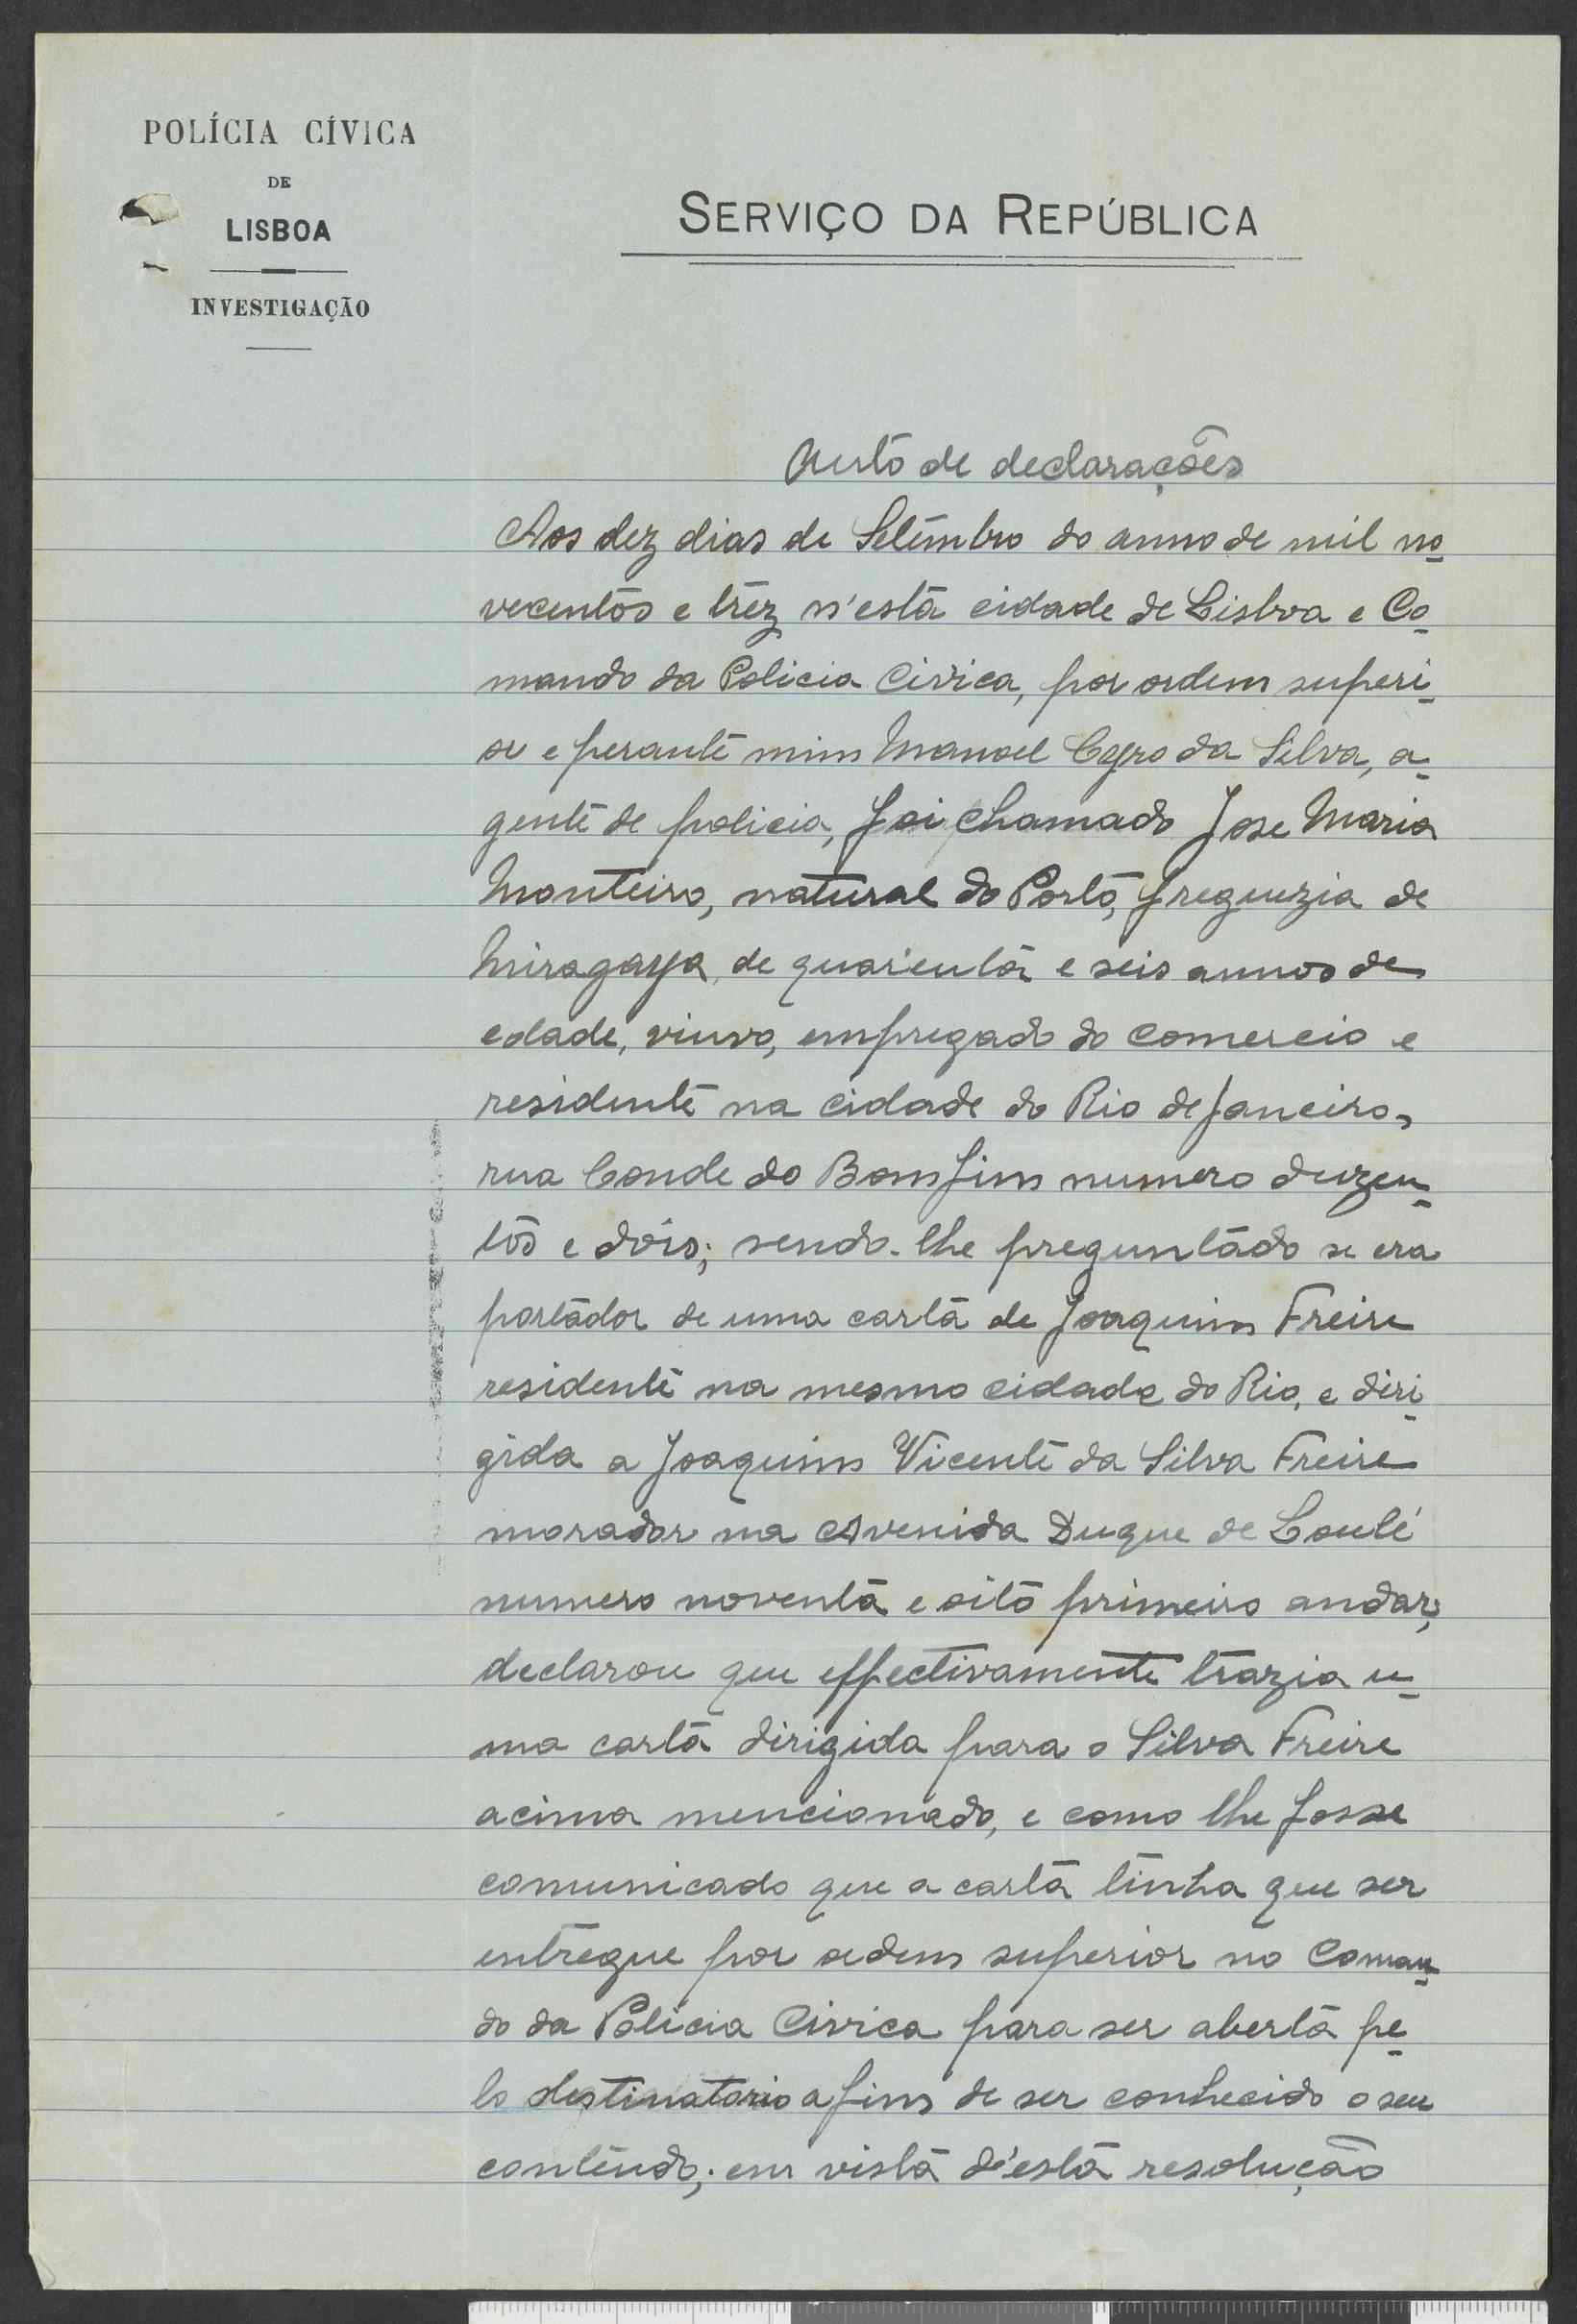 POLÍCIA CÍVICA
DE
LISBOA
INVESTIGAÇÃO
SERVIÇO DA REPÚBLICA
Auto de declarações
Aos dez dias de Setembro do anno de mil no-
vecentos e trez n'esta cidade de Lisboa e Co-
mando da Policia Civica, por ordem superi-
or e perante mim Manoel da Silva, a-
gente de policia, foi chamado Jose Maria
Monteiro, natural do Porto, freguezia de
Miragaya, de quarenta e seis annos de
edade, viuvo, empregado do comercio e
residente na cidade do Rio de Janeiro,
rua Conde do Bomfim numero duzen-
tos e dois; sendo-lhe preguntado se era
portador de uma carta de Joaquim Freire
residente na mesmo cidade do Rio, e diri-
gida a Joaquim Vicente da Silva Freire
morador na Avenida Duque de Loulé
numero noventa e oito primeiro andar,
declarou que effectivamente trazia u-
ma carta dirigida para o Silva Freire
acima mencionado, e como lhe fosse
comunicado que a carta tinha que ser
entregue por ordem superior no Coman-
do da Policia Civica para ser aberta pe-
lo destinatario a fim de ser conhecido o seu
conteudo; em vista d'esta resolução